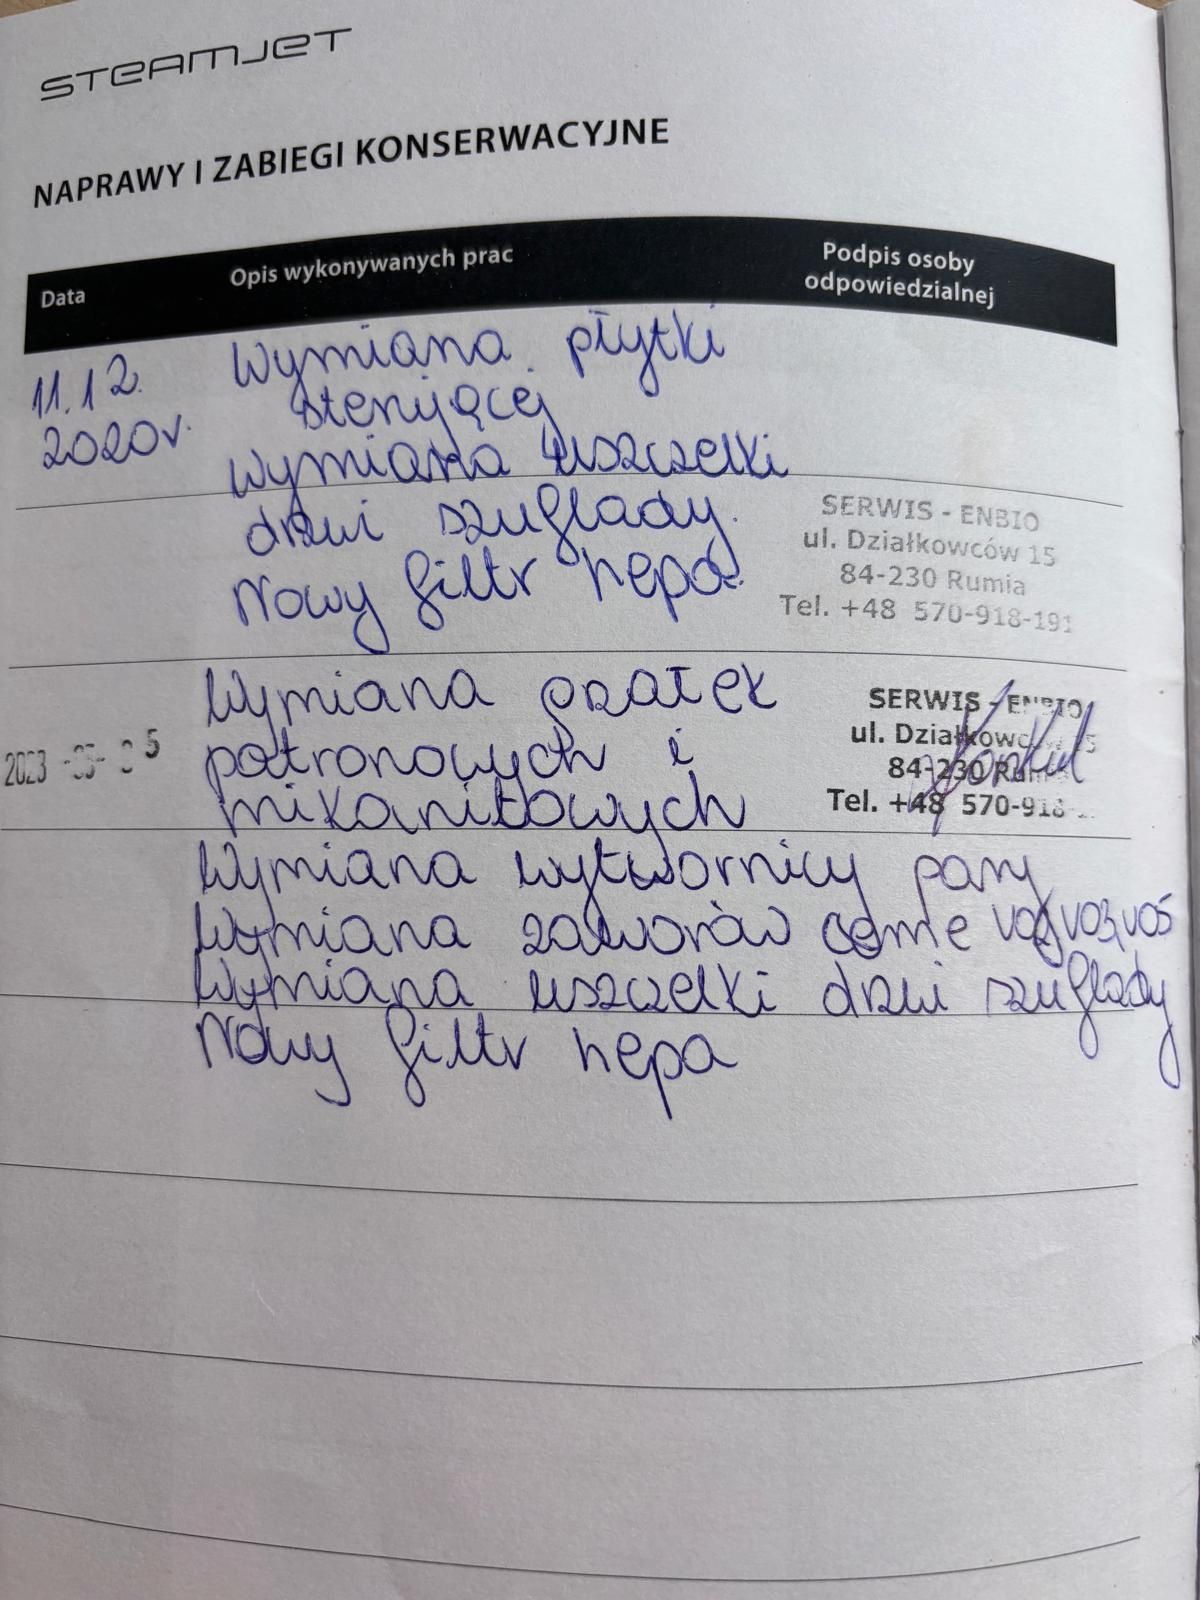 STEAMJET
NAPRAWY I ZABIEGI KONSERWACYJNE
Data
Opis wykonywanych prac
Podpis osoby
odpowiedzialnej
11.12.
2020r.
Wymiana płytki
sterującej
wymiana uszczelki
drzwi szuflady.
Nowy filtr hepa.
SERWIS - ENBIO
ul. Działkowców 15
84-230 Rumia
Tel. +48 570-918-191
2023
Wymiana grzałek
patronowych i
mikanitowych
SERWIS - ENBIO
ul. Działkowców 15
84-230 Rumia
Tel. +48 570-918-
Wymiana wytwornicy pary
Wymiana zaworów ceme V03, V05
Wymiana uszczelki drzwi szuflady
Nowy filtr hepa